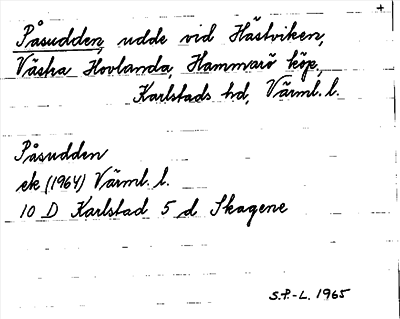 +
Påsudden, udde vid Hästviken,
Västra Hovlanda, Hammarö köp.,
Karlstads hd, Värml. l.
Påsudden
ek (1964) Värml. l.
10 D Karlstad 5 d Skagene
S.P.-L. 1965